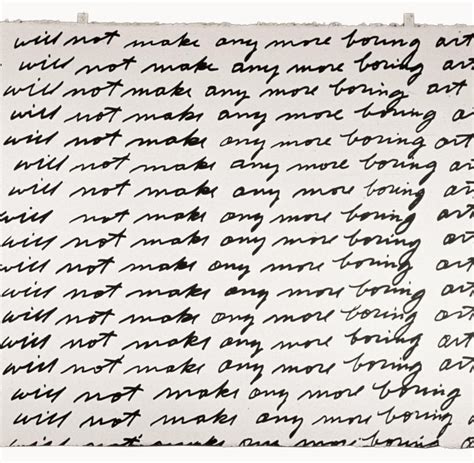 will not make any more boring art
will not make any more boring ar
will not make any more boring art
will not make any more boring a
will not make any more boring ar
will not make any more boring art
will not make any more boring art
will not make any more boring art
will not make any more boring art
will not make any more boring art
will not make any more boring art
will not make any more boring art
will not make any more boring art
will not make any more boring art
will not make any more boring a
will not make any more boring ar
will not make any more boring